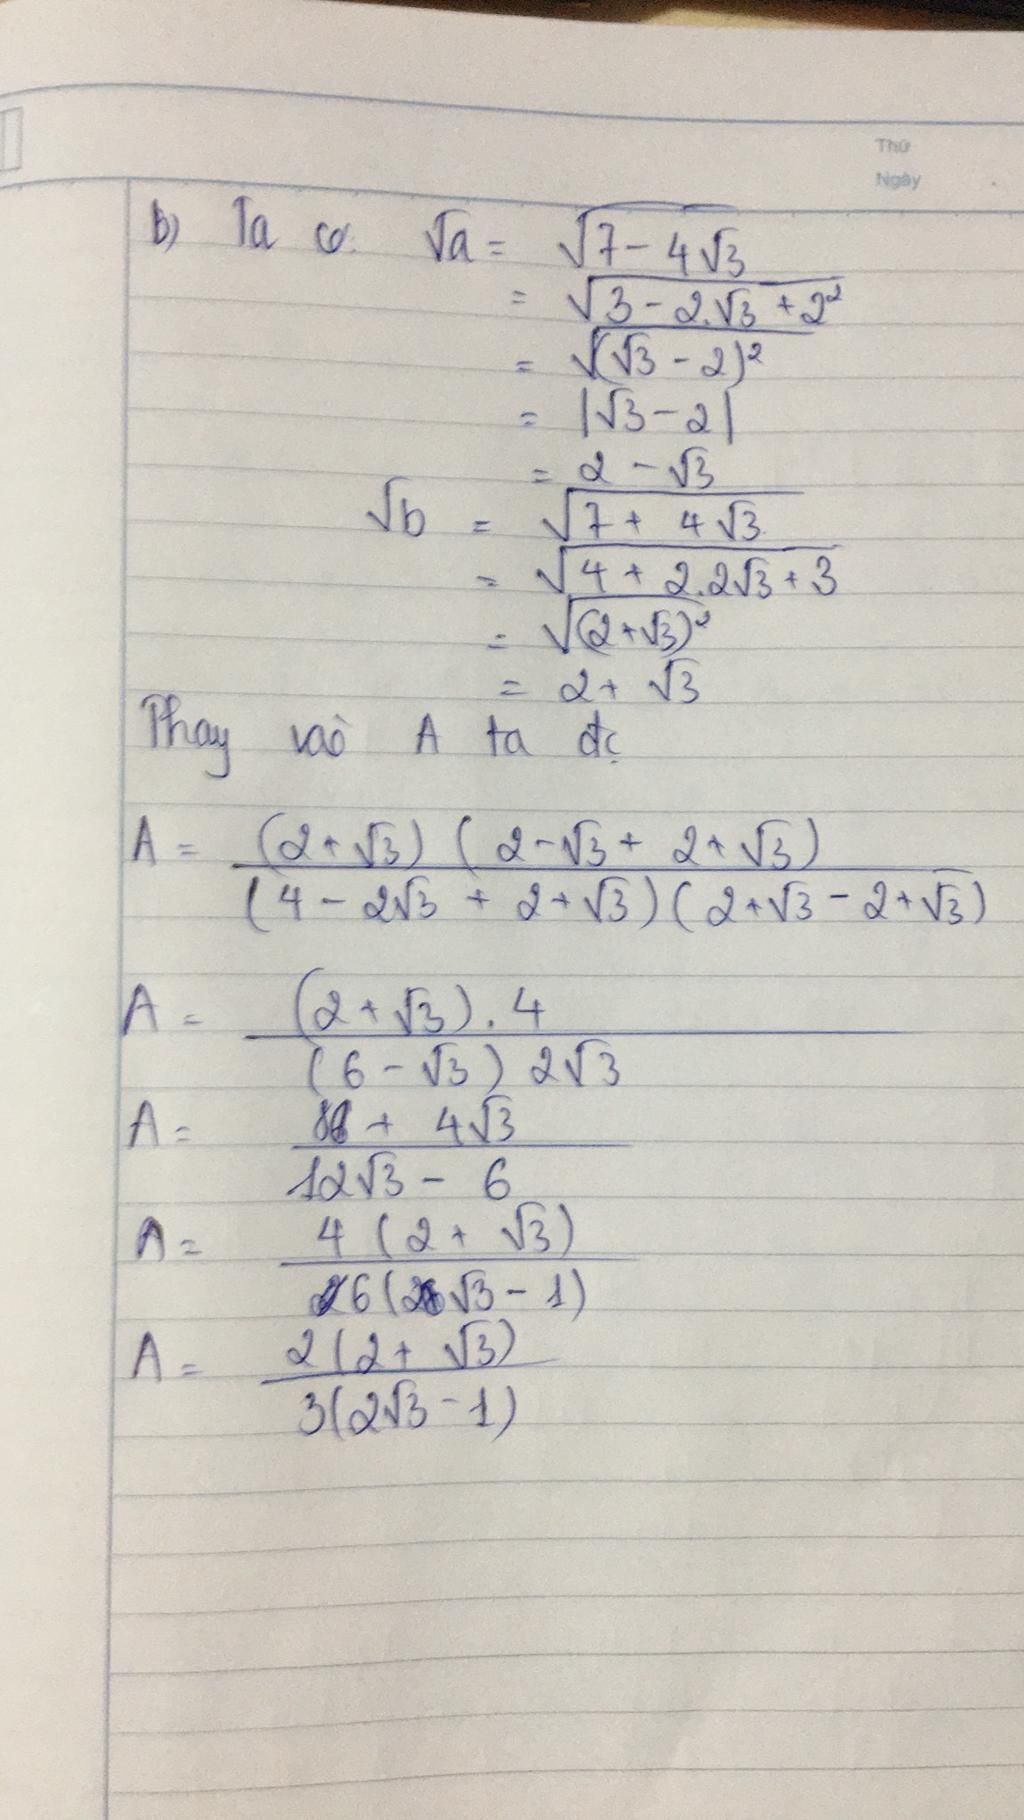 Thứ
Ngày
b) Ta có: √a = √(7 - 4√3)
= √(3 - 2.√3 + 2²)
= √((√3 - 2)²)
= |√3 - 2|
= 2 - √3
√b = √(7 + 4√3)
= √(4 + 2.2√3 + 3)
= √((2+√3)²)
= 2 + √3
Thay vào A ta đc
A = (2+√3) (2-√3 + 2+√3) / (4 - 2√3 + 2+√3)(2+√3 - 2+√3)
A = (2+√3).4 / (6 - √3) 2√3
A = 8 + 4√3 / 12√3 - 6
A = 4 (2 + √3) / 6(2√3 - 1)
A = 2(2 + √3) / 3(2√3 - 1)